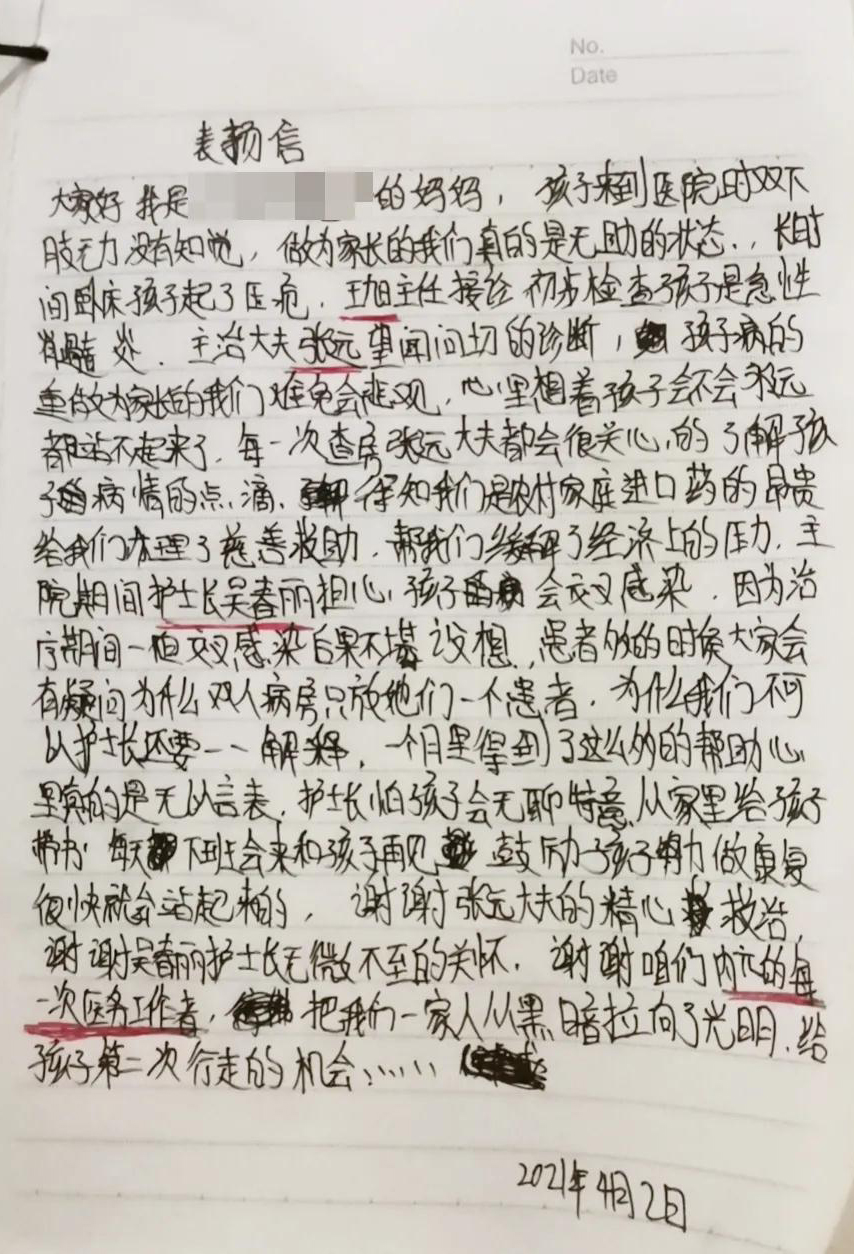 No.
Date
表扬信
大家好 我是 的妈妈，孩子来到医院时双下
肢无力没有知觉，做为家长的我们真的是无助的状态.，长时
间卧床孩子起了压疮．主任接诊 初步检查孩子是急性
脊髓炎．主治大夫张元望闻问切的诊断，孩子病的
重做为家长的我们难免会悲观，心里想着孩子会不会永远
都站不起来了．每一次查房张元大夫都会很关心的了解孩
子病情的点滴、得知我们是农村家庭进口药的昂贵
给我们办理了慈善救助．帮我们缓解了经济上的压力．主
院期间护士长吴春丽担心孩子会交叉感染．因为治
疗期间一但交叉感染后果不堪设想．患者多的时候大家会
有疑问为什么双人病房只放她们一个患者．为什么我们不可
以护士长还要一一解释，一个月里得到了这么多的帮助心
里真的是无以言表．护士长怕孩子会无聊特意从家里给孩子
带书 每天下班会来和孩子再见 鼓励孩子努力做康复
很快就会站起来的，谢谢张元大夫的精心救治，
谢谢吴春丽护士长无微不至的关怀．谢谢咱们内的每
一次医务工作者，把我们一家人从黑暗拉向了光明．给
孩子第二次行走的机会......
2021年4月2日